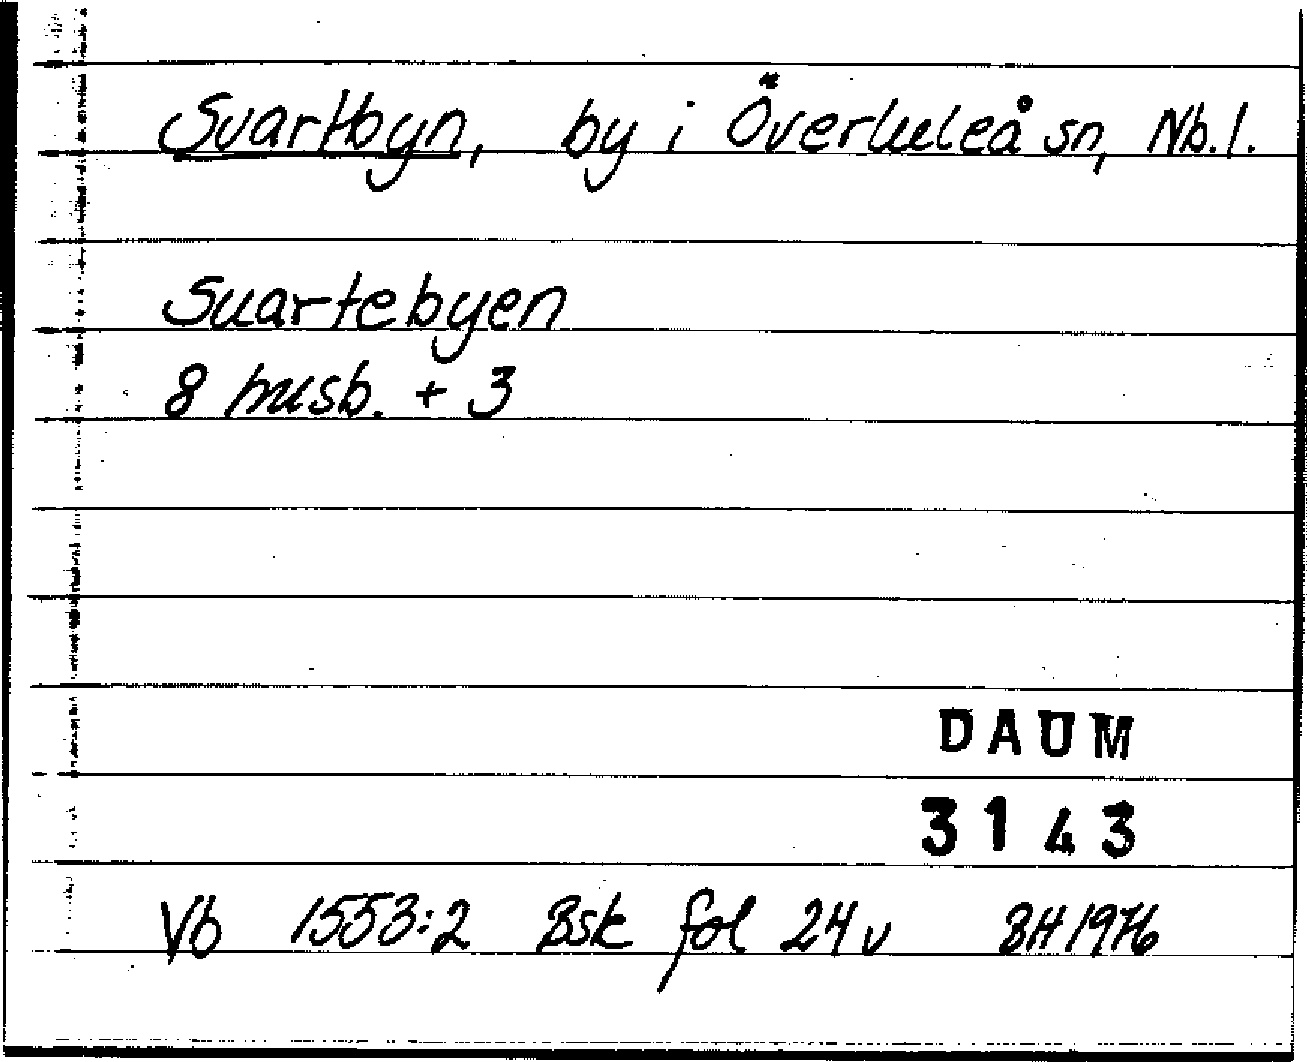 Svartbyn, by i Överluleå sn, Nb. l.
Suartebyen
8 husb. + 3
DAUM
3143
Vb 1553:2 Bsk fol 24 v BH 1976